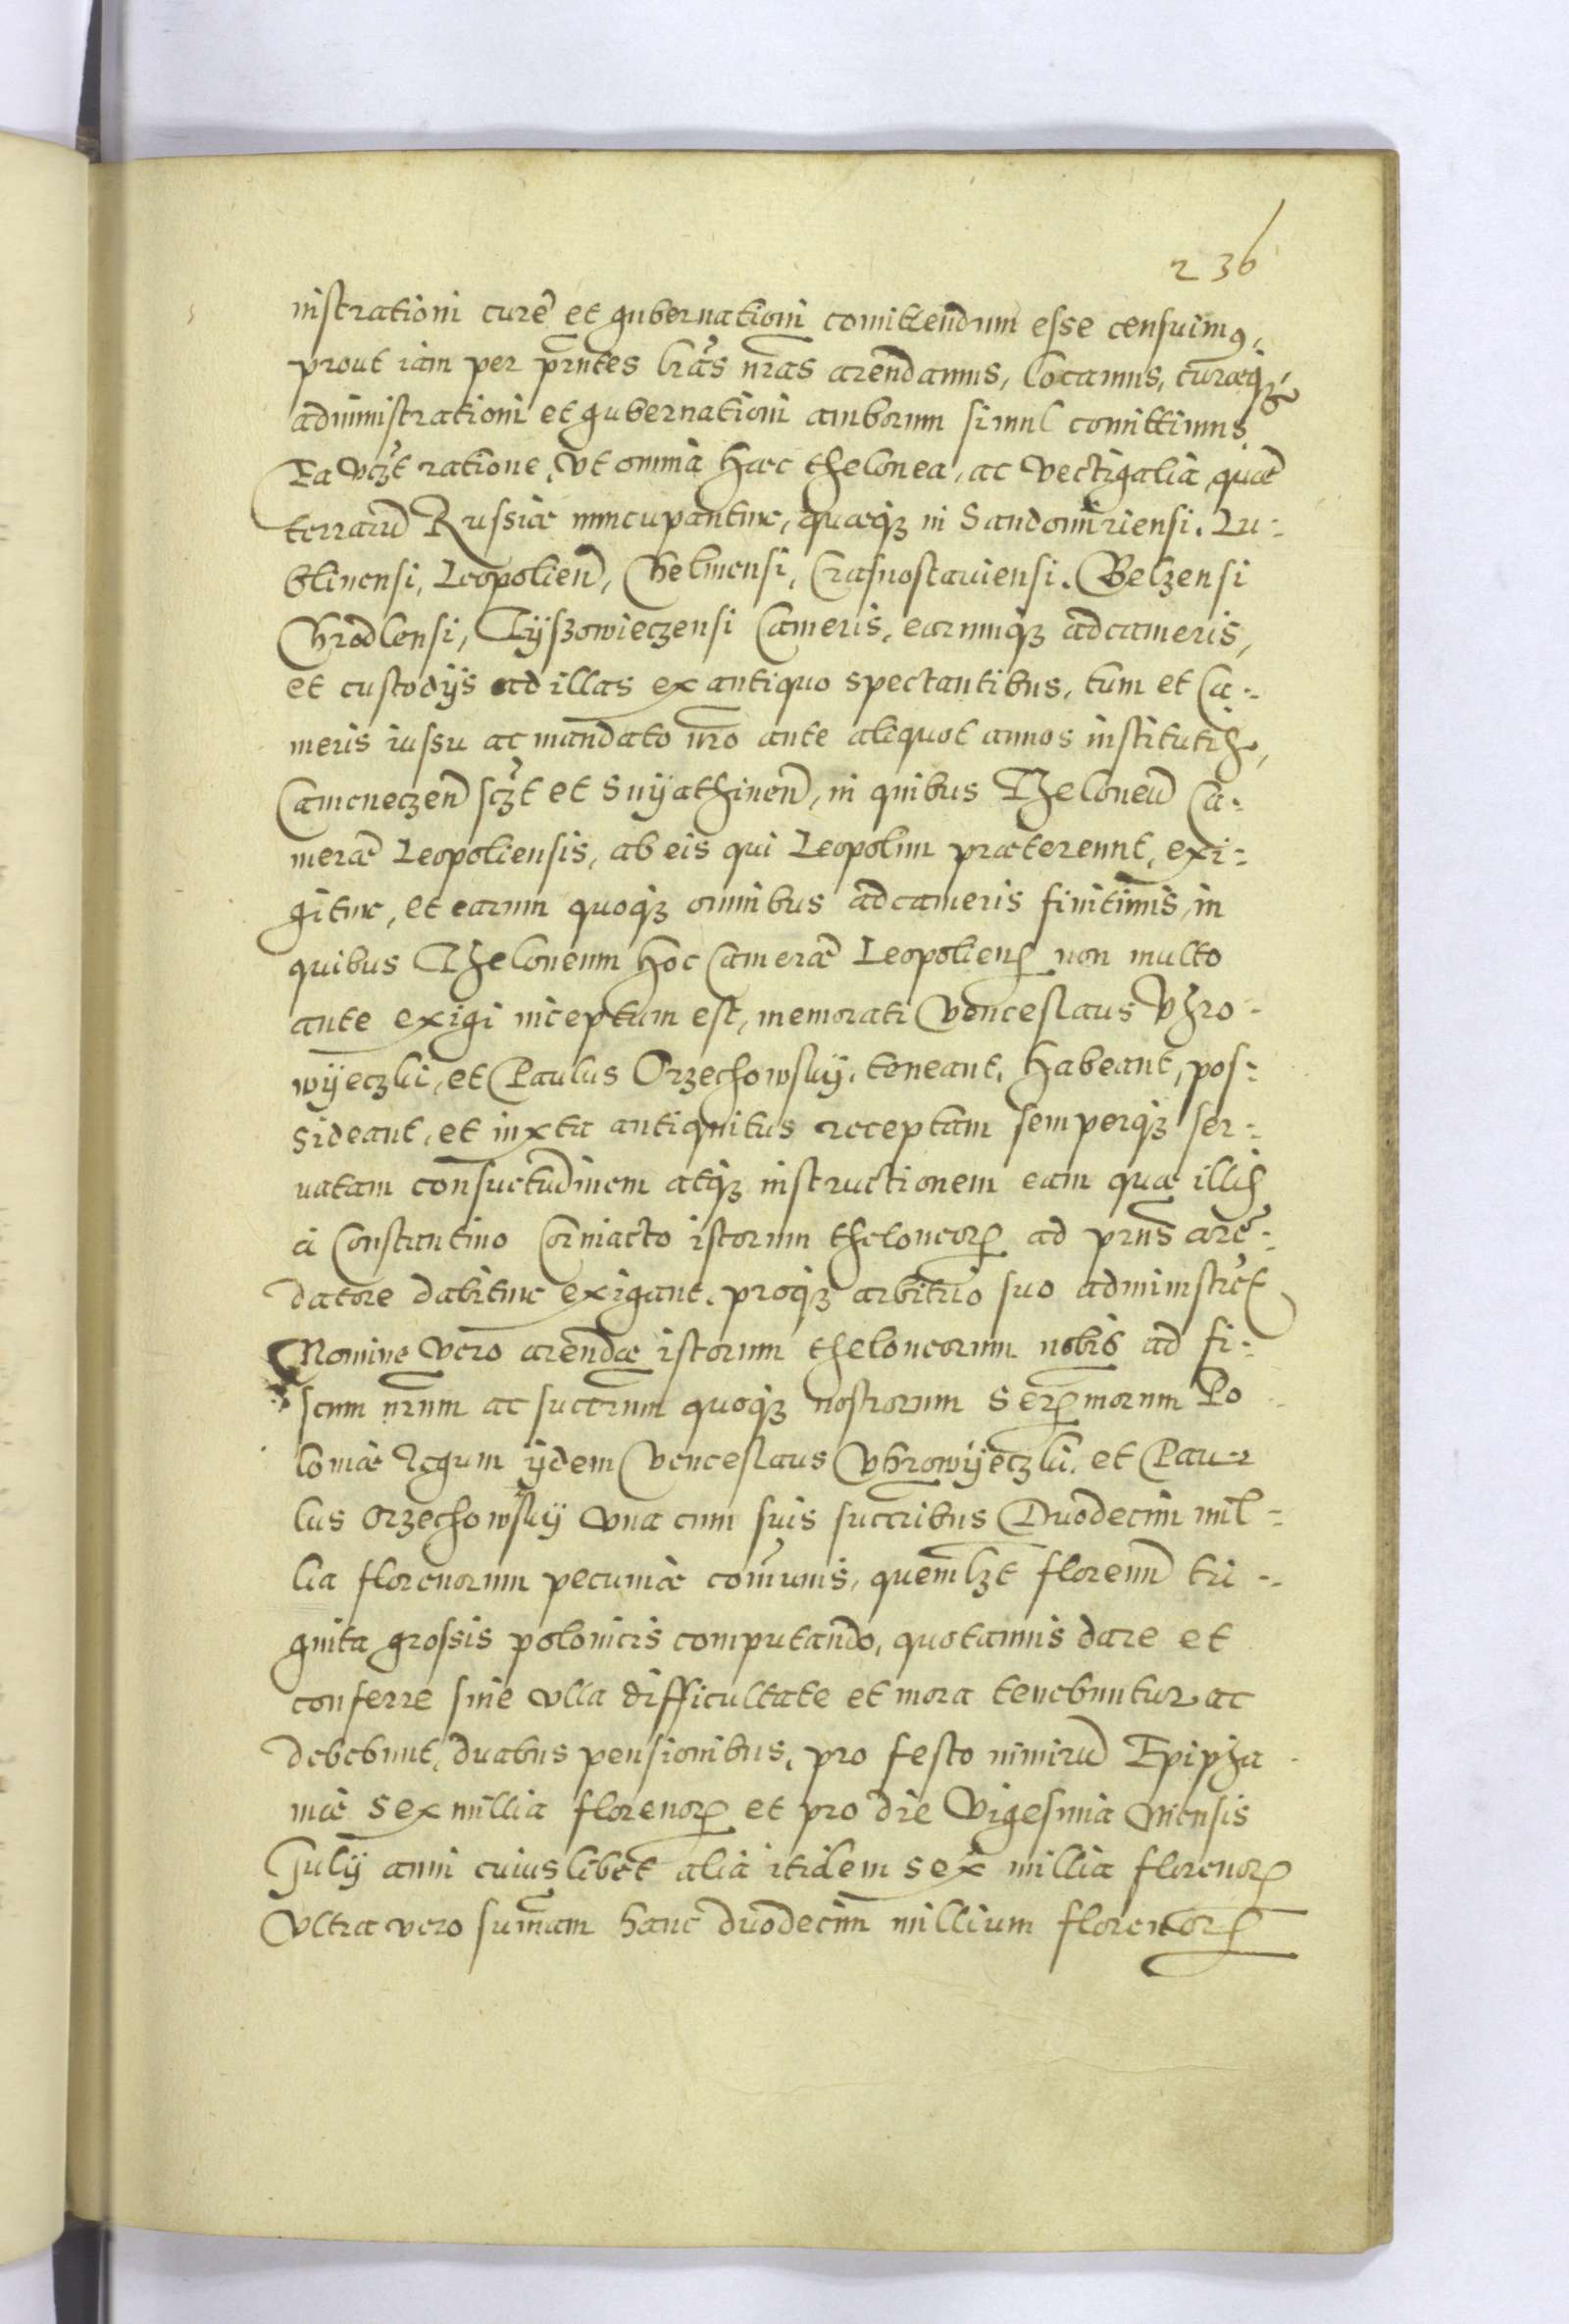 236
nistrationi curę et gubernationi comittendum esse censuimꝯ,
prout iam per pr̃ntes lr̃as nr̃as arendamus, locamus, curæqꝫ
administrationi et gubernationi amborum simul comittimus.
Ea vcꝫt ratione, vt omnia hæc thelonea, ac vectigalia quæ
terrarũ Russiæ nuncupantur, quæqꝫ in Sandomiriensi. Lu-
blinensi, Leopolieñ, Chelmensi, Crasnostauiensi. Belzensi
Hrodlensi, Tÿszowieczensi Cameris, earumqꝫ adcameris,
et custodÿs ad illas ex antiquo spectantibus, tum et Ca-
meris iussu ac mandato nr̃o ante aliquot annos institutis,
Cameneczeñ scꝫt et Snÿathineñ, in quibus Theloneũ Ca-
meræ Leopoliensis, ab eis qui Leopolim prætereunt, exi-
gitur, et earum quoqꝫ omnibus adcameris finitimis, in
quibus Theloneum hoc Cameræ Leopolieñs non multo
ante exigi inceptum est, memorati Venceslaus Vhro-
wÿeczki, et Paulus Orzechowskÿ, teneant, habeant, pos-
sideant, et iuxta antiquitus receptam semperqꝫ ser-
uatam consuetudinem atqꝫ instructionem eam quæ illis
à Constantino Corniacto istorum theloneorꝝ ad prñs arẽ-
datore dabitur exigant. proqꝫ arbitrio suo administrẽt
Nomine vero arendæ istorum theloneorum nobis ad fi-
scum nr̃um ac succrum quoqꝫ nostrorum Serꝑmorum Po
loniæ Regum ÿdem Venceslaus Vhrowÿeczki. et Pau-
lus Orzechowskÿ vna cum suis succribus Duodecim mil-
lia florenorum pecuniæ com̃unis, quemlꝫt florenũ tri-
ginta grossis polonicis computando, quotannis dare et
conferre sine vlla difficultate et mora tenebuntur ac
debebunt, duabus pensionibus, pro festo nimirũ Epipha
niæ Sex millia florenorꝝ et pro die Vigesima Mensis
Julÿ anni cuiuslibet alia itidem sex millia florenorꝝ
Vltra vero sum̃am hanc duodecim millium florenorꝝ